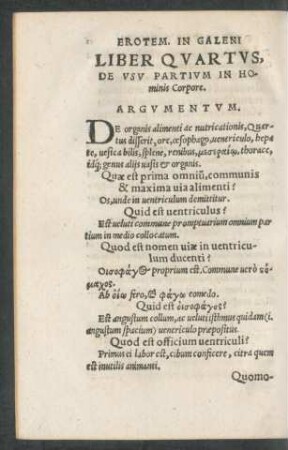 EROTEM. IN GALENI
LIBER QVARTVS,
DE VSV PARTIVM IN HO-
minis Corpore.
ARGVMENTVM.
DE organis alimenti ac nutricationis, Quar-
tus disserit, ore, œsophago, uentriculo, hepa
te, uesica bilis, splene, renibus, μεσαραίῳ, thorace,
idq; genus alijs uasis et organis.
Quæ est prima omniũ, communis
& maxima uia alimenti?
Os, unde in uentriculum demittitur.
Quid est uentriculus?
Est ueluti commune promptuarium omnium par
tium in medio collocatum.
Quod est nomen uiæ in uentricu-
lum ducenti?
Οισοφάγος proprium est. Commune uerò
μαχος.
Ab οἴω fero, & φάγω comedo.
Quid est οἰσοφάγος?
Est angustum collum, ac ueluti isthmus quidam (i.
angustum spacium) uentriculo præpositus.
Quod est officium uentriculi?
Primus ei labor est, cibum conficere, citra quem
est inutilis animanti.
Quomo-